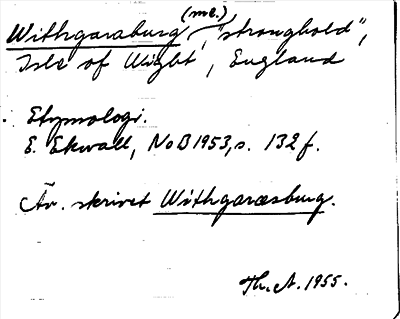 (me.)
Withgaraburg, "stronghold",
Isle of Wight, England
Etymologi.
E. Ekwall, NoB 1953, s. 132 f.
Äv. skrivet Withgaræsburg.
Th. A. 1955.